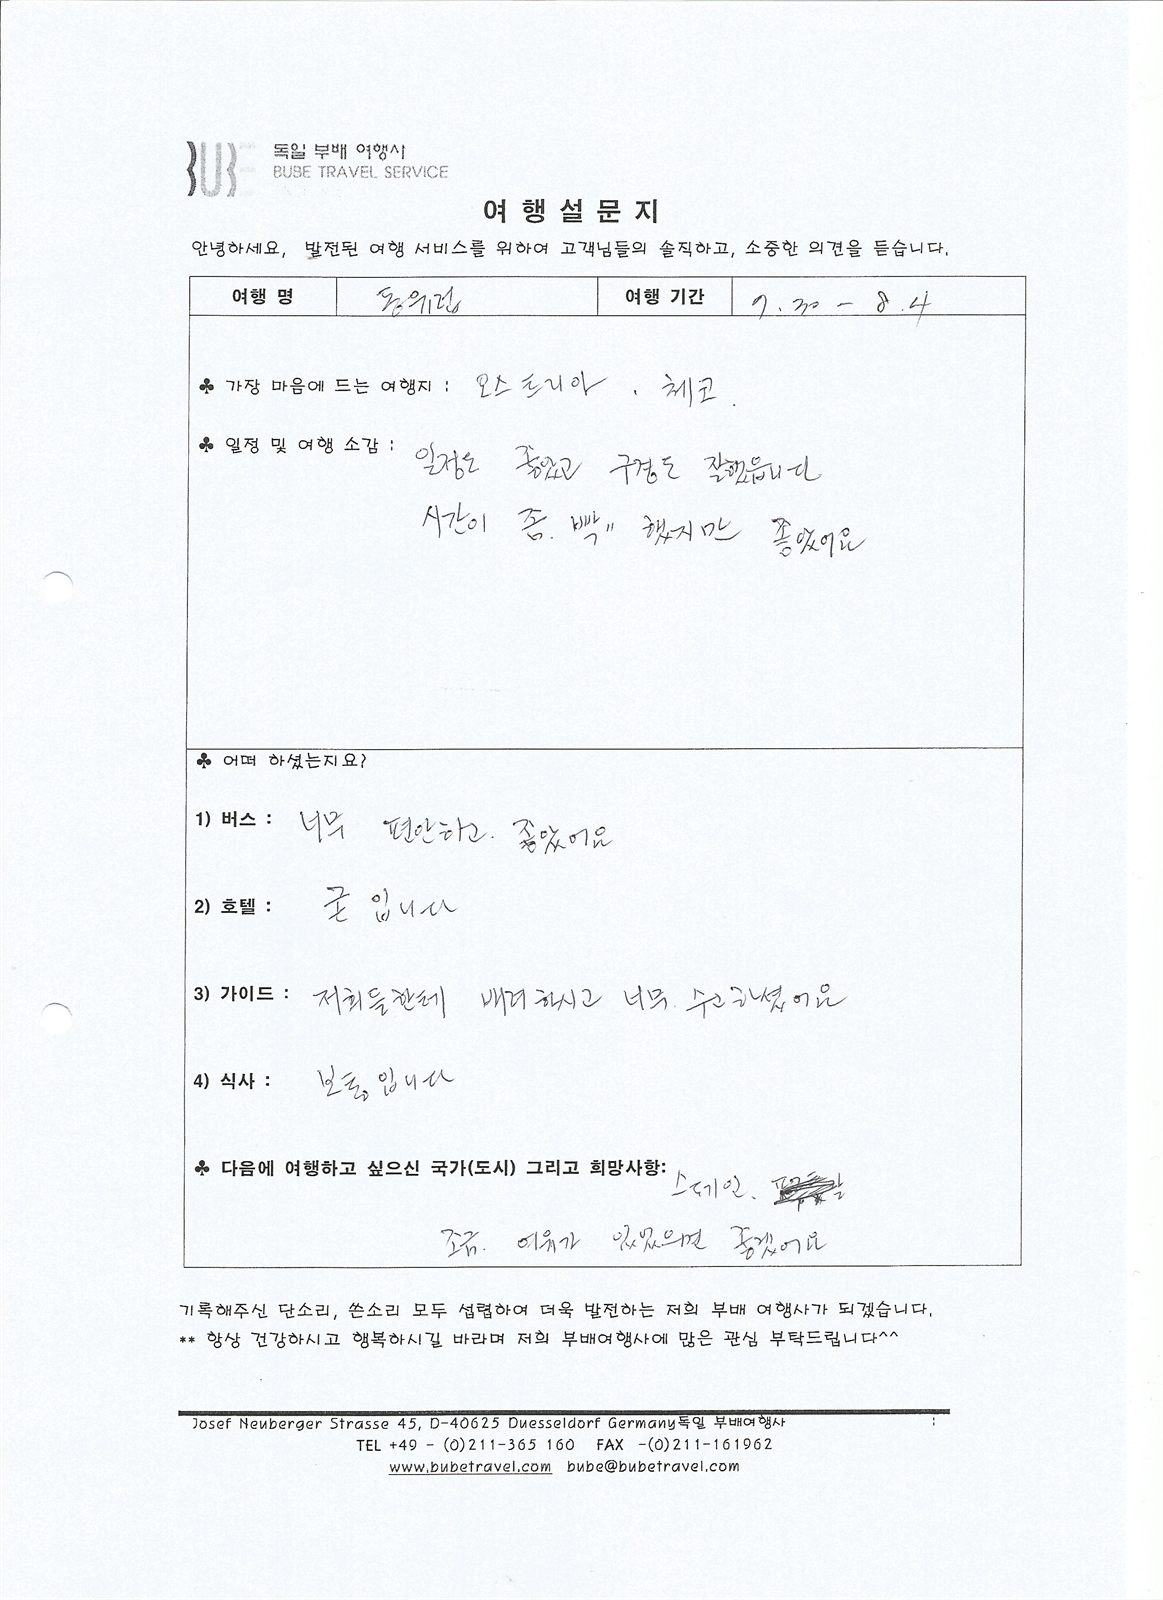 BUBE 독일 부배 여행사
BUBE TRAVEL SERVICE
여 행 설 문 지
안녕하세요, 발전된 여행 서비스를 위하여 고객님들의 솔직하고, 소중한 의견을 듣습니다.
여행 명 동위럽 여행 기간 7.30 - 8.4
♣ 가장 마음에 드는 여행지 : 오스트리아 . 체코.
♣ 일정 및 여행 소감 : 일정도 좋았고 구경도 잘했읍니다
시간이 좀. 빡〃 했지만 좋았어요
♣ 어떠 하셨는지요?
1) 버스 : 너무 편안하고. 좋았어요
2) 호텔 : 굳 입니다
3) 가이드 : 저희들한테 배려하시고 너무. 수고하셨어요
4) 식사 : 보통입니다
♣ 다음에 여행하고 싶으신 국가(도시) 그리고 희망사항:
스페인.
조금. 여유가 있었으면 좋겠어요
기록해주신 단소리, 쓴소리 모두 섭렵하여 더욱 발전하는 저희 부배 여행사가 되겠습니다.
** 항상 건강하시고 행복하시길 바라며 저희 부배여행사에 많은 관심 부탁드립니다^^
Josef Neuberger Strasse 45, D-40625 Duesseldorf Germany독일 부배여행사 :
TEL +49 - (0)211-365 160 FAX -(0)211-161962
www.bubetravel.com bube@bubetravel.com